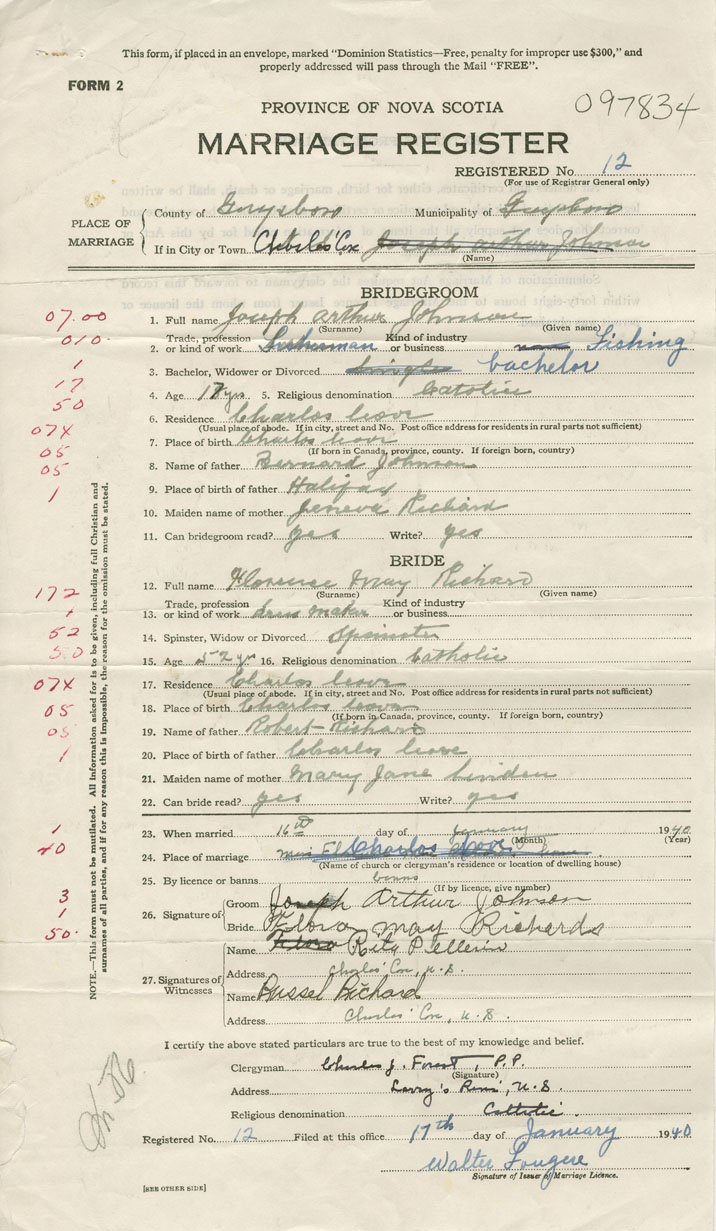 This form, if placed in an envelope, marked "Dominion Statistics—Free, penalty for improper use $300," and
properly addressed will pass through the Mail "FREE".
FORM 2
PROVINCE OF NOVA SCOTIA
097834
MARRIAGE REGISTER
REGISTERED No. 12
(For use of Registrar General only)
PLACE OF MARRIAGE
County of Guysboro Municipality of Guysboro
If in City or Town Charles' Cove Joseph Arthur Johnson
(Name)
BRIDEGROOM
07.00
1. Full name Joseph Arthur Johnson
(Surname) (Given name)
010.
2. Trade, profession or kind of work Fisherman Kind of industry or business Fishing
1
3. Bachelor, Widower or Divorced Single bachelor
17
4. Age 17 yrs 5. Religious denomination Catolic
50
6. Residence Charlos Cove
(Usual place of abode. If in city, street and No. Post office address for residents in rural parts not sufficient)
07X
7. Place of birth Charlos Cove
(If born in Canada, province, county. If foreign born, country)
05
8. Name of father Bernard Johnson
05
9. Place of birth of father Halifax
1
10. Maiden name of mother Geneva Richard
11. Can bridegroom read? yes Write? yes
BRIDE
12. Full name Florence May Richard
(Surname) (Given name)
172
13. Trade, profession or kind of work dress maker Kind of industry or business
1
14. Spinster, Widow or Divorced Spinster
52
15. Age 52 yr 16. Religious denomination Catholic
50
17. Residence Charlos Cove
(Usual place of abode. If in city, street and No. Post office address for residents in rural parts not sufficient)
07X
18. Place of birth Charlos Cove
(If born in Canada, province, county. If foreign born, country)
05
19. Name of father Robert Richard
05
20. Place of birth of father Charlos Cove
1
21. Maiden name of mother Mary Jane Linden
22. Can bride read? yes Write? yes
1
23. When married 16th day of January 1940
(Month) (Year)
20
24. Place of marriage Charlos Cove
(Name of church or clergyman's residence or location of dwelling house)
25. By licence or banns banns
(If by licence, give number)
3
26. Signature of
Groom Joseph Arthur Johnson
1
Bride Flora May Richards
50.
27. Signatures of Witnesses
Name Flora Rita Pellerin
Address Charlos' Cove, N.S.
Name Russel Richard
Address Charlos' Cove, N.S.
NOTE.—This form must not be mutilated. All information asked for is to be given, including full Christian and
surnames of all parties, and if for any reason this is impossible, the reason for the omission must be stated.
I certify the above stated particulars are true to the best of my knowledge and belief.
Clergyman Charles J. Forest, P.P.
(Signature)
Address Larry's River, N.S.
Religious denomination Catholic.
Registered No. 12 Filed at this office 17th day of January 1940
Walter Fougere
Signature of Issuer of Marriage Licence.
[SEE OTHER SIDE]